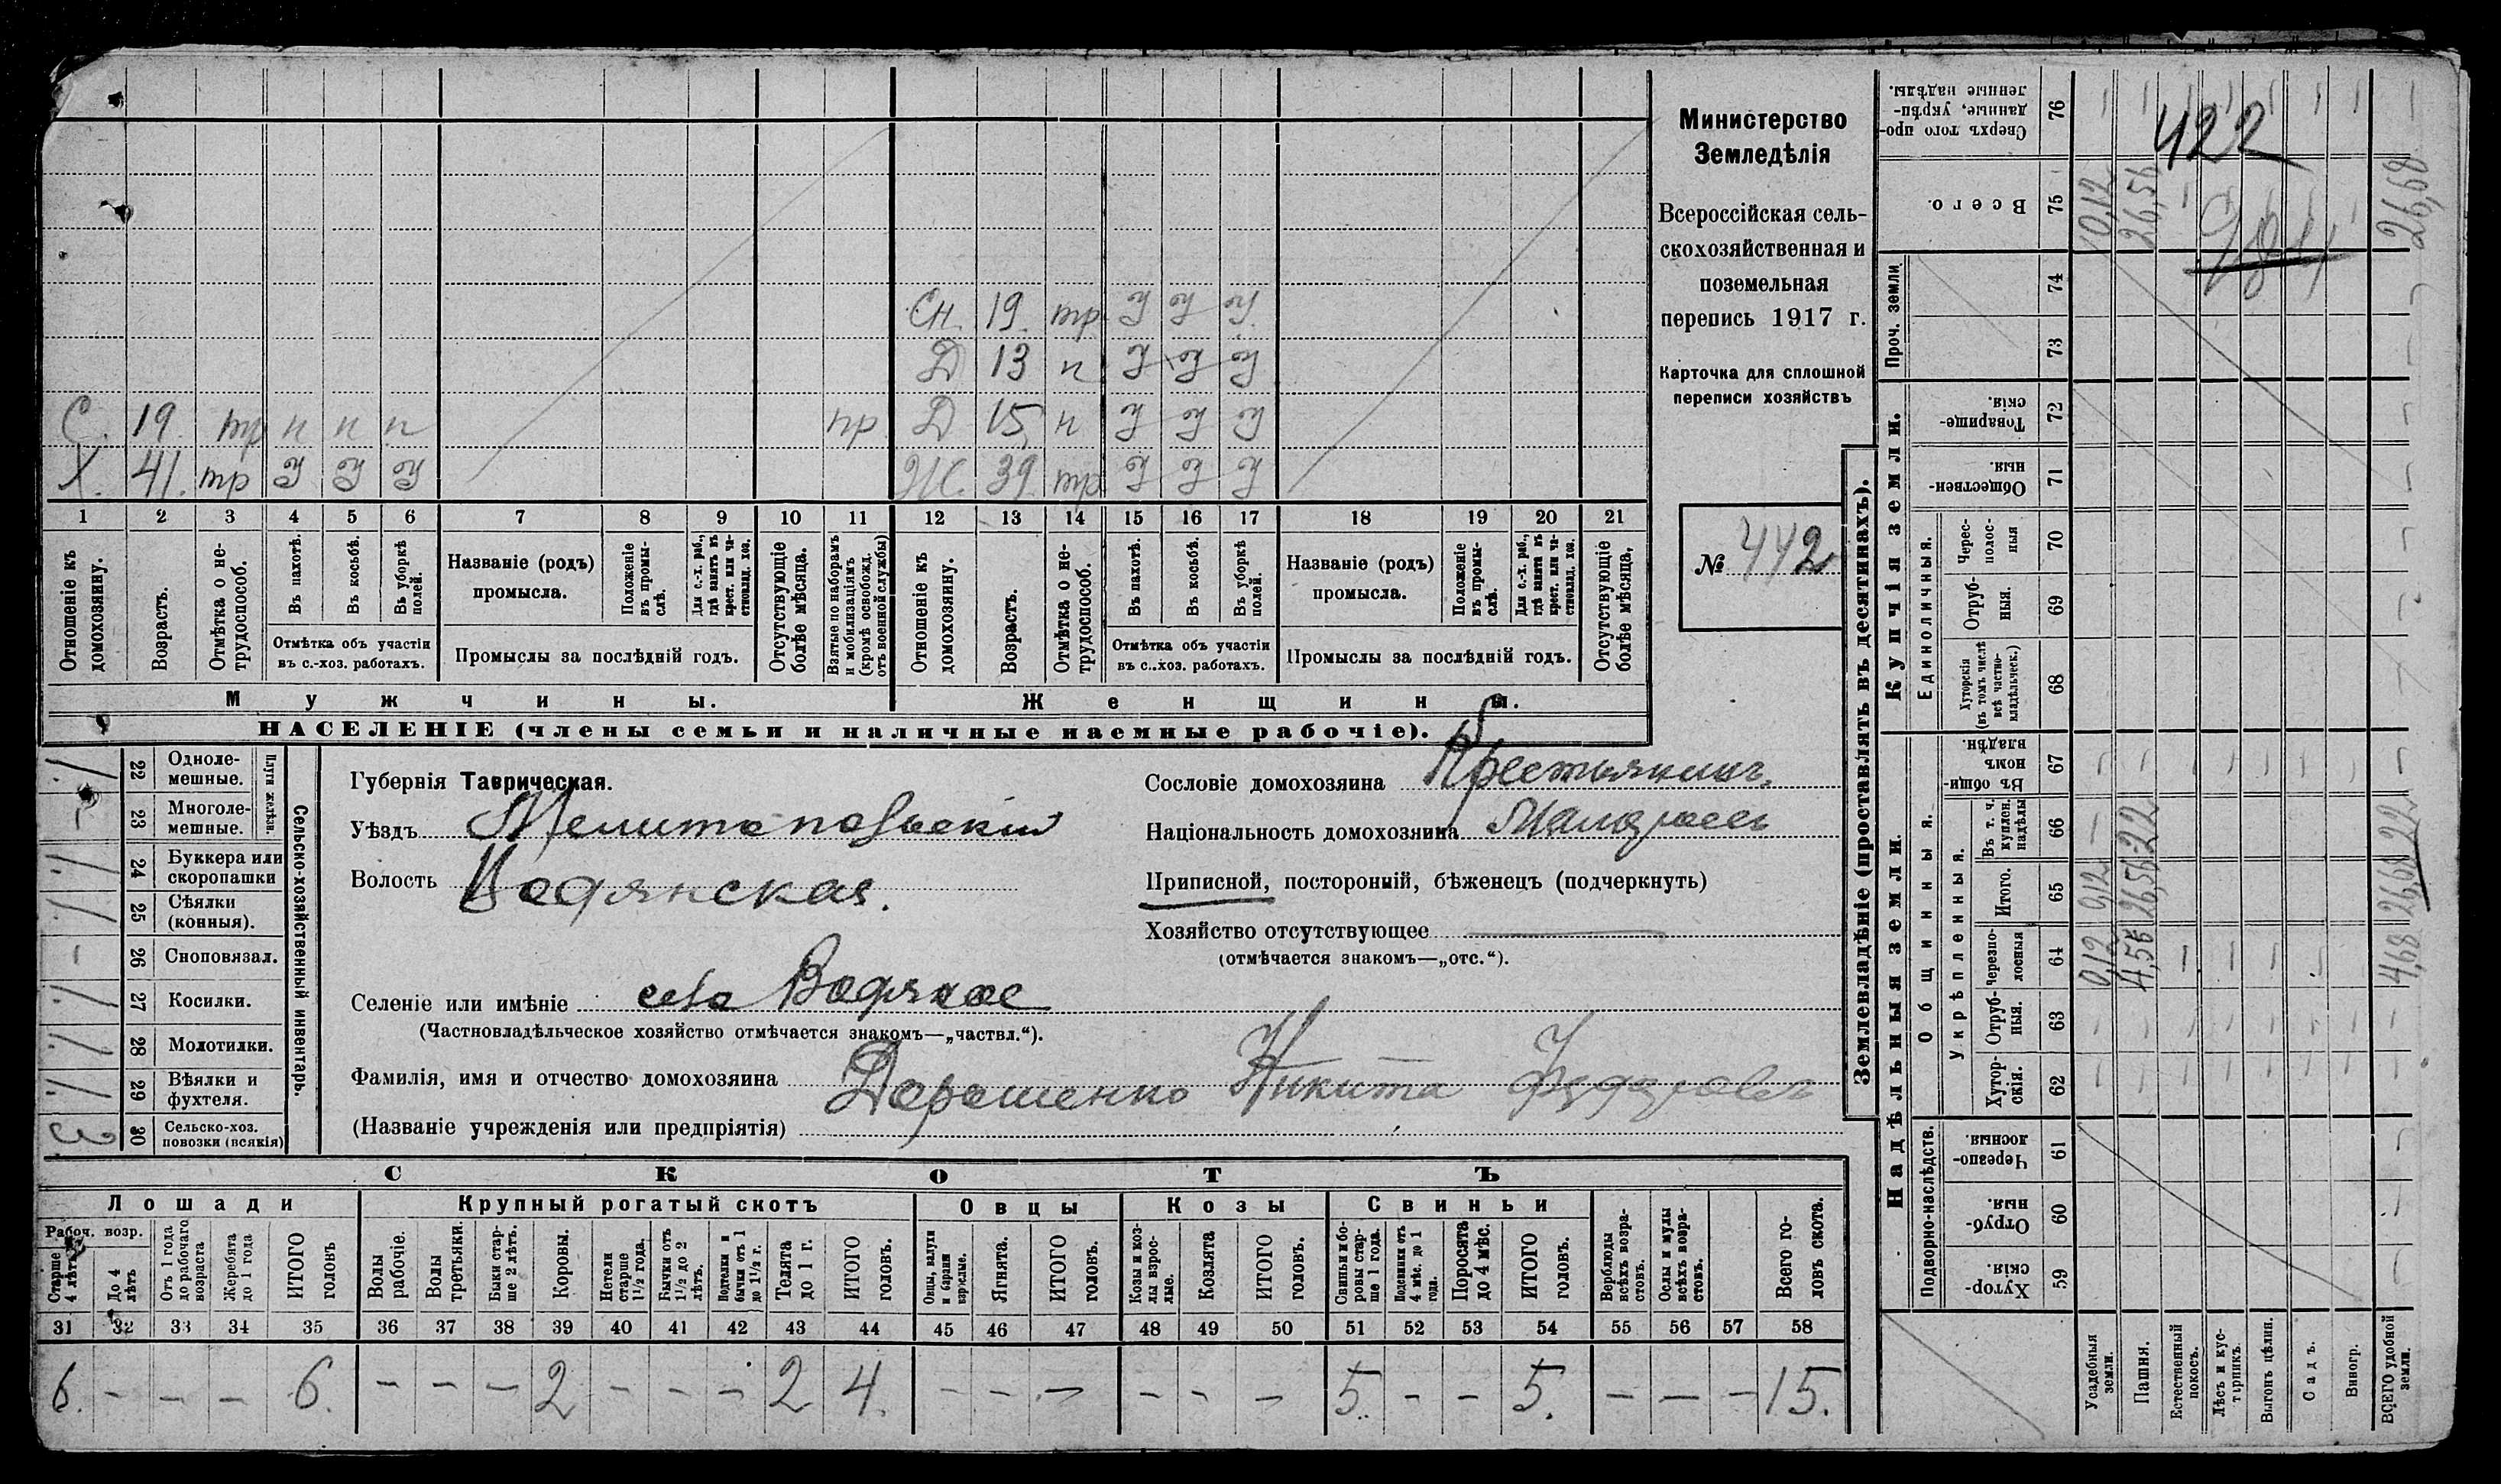 Министерство
Земледѣлія
Всероссійская сель-
скохозяйственная и
поземельная
перепись 1917 г.
Карточка для сплошной
переписи хозяйствъ
№ 442
СН. 19. тр У У У
Д 13 п У У У
С. 19 тр п п п пр Д 15 п У У У
Х. 41. тр У У У Ж. 39. тр У У У
1 2 3 4 5 6 7 8 9 10 11 12 13 14 15 16 17 18 19 20 21
Отношеніе къ домохозяину.
Возрастъ.
Отмѣтка о не-трудоспособ.
Въ пахотѣ.
Въ косьбѣ.
Въ уборкѣ полей.
Отмѣтка объ участіи
въ с.-хоз. работахъ.
Названіе (родъ)
промысла.
Положеніе въ промы-слѣ.
Для с.-х. раб., гдѣ занятъ въ крест. или ча-стновлад. хоз.
Промыслы за послѣдній годъ.
Отсутствующіе болѣе мѣсяца.
Взятые по наборамъ и мобилизаціямъ (кромѣ освобожд. отъ военной службы)
Отношеніе къ домохозяину.
Возрастъ.
Отмѣтка о не-трудоспособ.
Въ пахотѣ.
Въ косьбѣ.
Въ уборкѣ полей.
Отмѣтка объ участіи
въ с..хоз. работахъ.
Названіе (родъ)
промысла.
Положеніе въ промы-слѣ.
Для с.-х. раб., гдѣ занята въ крест. или ча-стновлад. хоз.
Промыслы за послѣдній годъ.
Отсутствующіе болѣе мѣсяца,
Мужчины. Женщины.
НАСЕЛЕНІЕ (члены семьи и наличные наемные рабочіе).
Сельско-хозяйственный инвентарь.
Плуги желѣзн.
1 22 Одноле-мешные.
— 23 Многоле-мешные.
1 24 Буккера или скоропашки
1 25 Сѣялки (конныя).
- 26 Сноповязал.
1 27 Косилки.
1 28 Молотилки.
1 29 Вѣялки и фухтеля.
3 30 Сельско-хоз. повозки (всякія)
Губернія Таврическая.
Уѣздъ Мелитопольскій
Волость Водянская.
Селеніе или имѣніе село Водяное
(Частновладѣльческое хозяйство отмѣчается знакомъ—„частвл.“).
Фамилія, имя и отчество домохозяина Дорошенко Никита
(Названіе учрежденія или предпріятія)
Сословіе домохозяина Крестьянинъ.
Національность домохозяина Малороссъ
Приписной, посторонній, бѣженецъ (подчеркнуть)
Хозяйство отсутствующее —
(отмѣчается знакомъ—„отс.“).
СКОТЪ
Лошади Крупный рогатый скотъ Овцы Козы Свиньи
Рабоч. возр.
Старше 4 лѣтъ
До 4 лѣтъ
Отъ 1 года до рабочаго возраста
Жеребята до 1 года
ИТОГО головъ
Волы рабочіе.
Волы третьяки.
Быки стар-ше 2 лѣтъ.
Коровы.
Нетели старше 1½ года.
Бычки отъ 1½ до 2 лѣтъ.
Подтелки и бычки отъ 1 до 1½ г.
Телята до 1 г.
ИТОГО головъ.
Овцы, валухи и бараны взрослые.
Ягнята.
ИТОГО головъ.
Козы и коз-лы взрос-лые.
Козлята
ИТОГО головъ.
Свиньи и бо-ровы стар-ше 1 года.
Подсвинки отъ 4 мѣс. до 1 года.
Поросята до 4 мѣс.
ИТОГО головъ.
Верблюды всѣхъ возра-стовъ.
Ослы и мулы всѣхъ возра-стовъ.
Всего го-ловъ скота.
31 32 33 34 35 36 37 38 39 40 41 42 43 44 45 46 47 48 49 50 51 52 53 54 55 56 57 58
6. – – – 6. – – – 2 – – – 2 4. – – – – – – 5. – – 5. – – – 15.
Землевладѣніе (проставлять въ десятинахъ).
Сверхъ того про-данные, укрѣп-ленные надѣлы. 76
422
Всего. 75 0,12 26,56 26,68
Проч. земли
74
73
Купчія земли.
Товарище-скія. 72
Обществен-ныя. 71
Единоличныя.
Черес-полос-ныя 70
Отруб-ныя. 69
Хуторскія (въ томъ числѣ всѣ частно-владѣльческ.) 68
Надѣльныя земли.
Общинныя.
Въ общин-номъ владѣн. 67
Укрѣпленныя.
Въ т. ч. куплен. надѣлы 66 – 22 22
Итого. 65 0,12 26,56 26,68
Черезпо-лосныя 64 0,12 4,56 4,68
Отруб-ныя. 63
Хутор-скія. 62
Подворно-наслѣдств.
Черезпо-лосныя. 61
Отруб-ныя. 60
Хутор-скія. 59
Усадебныя земли.
Пашня.
Естественный покосъ.
Лѣсъ и кус-тарникъ.
Выгонъ цѣлин.
Садъ.
Виногр.
ВСЕГО удобной земли.